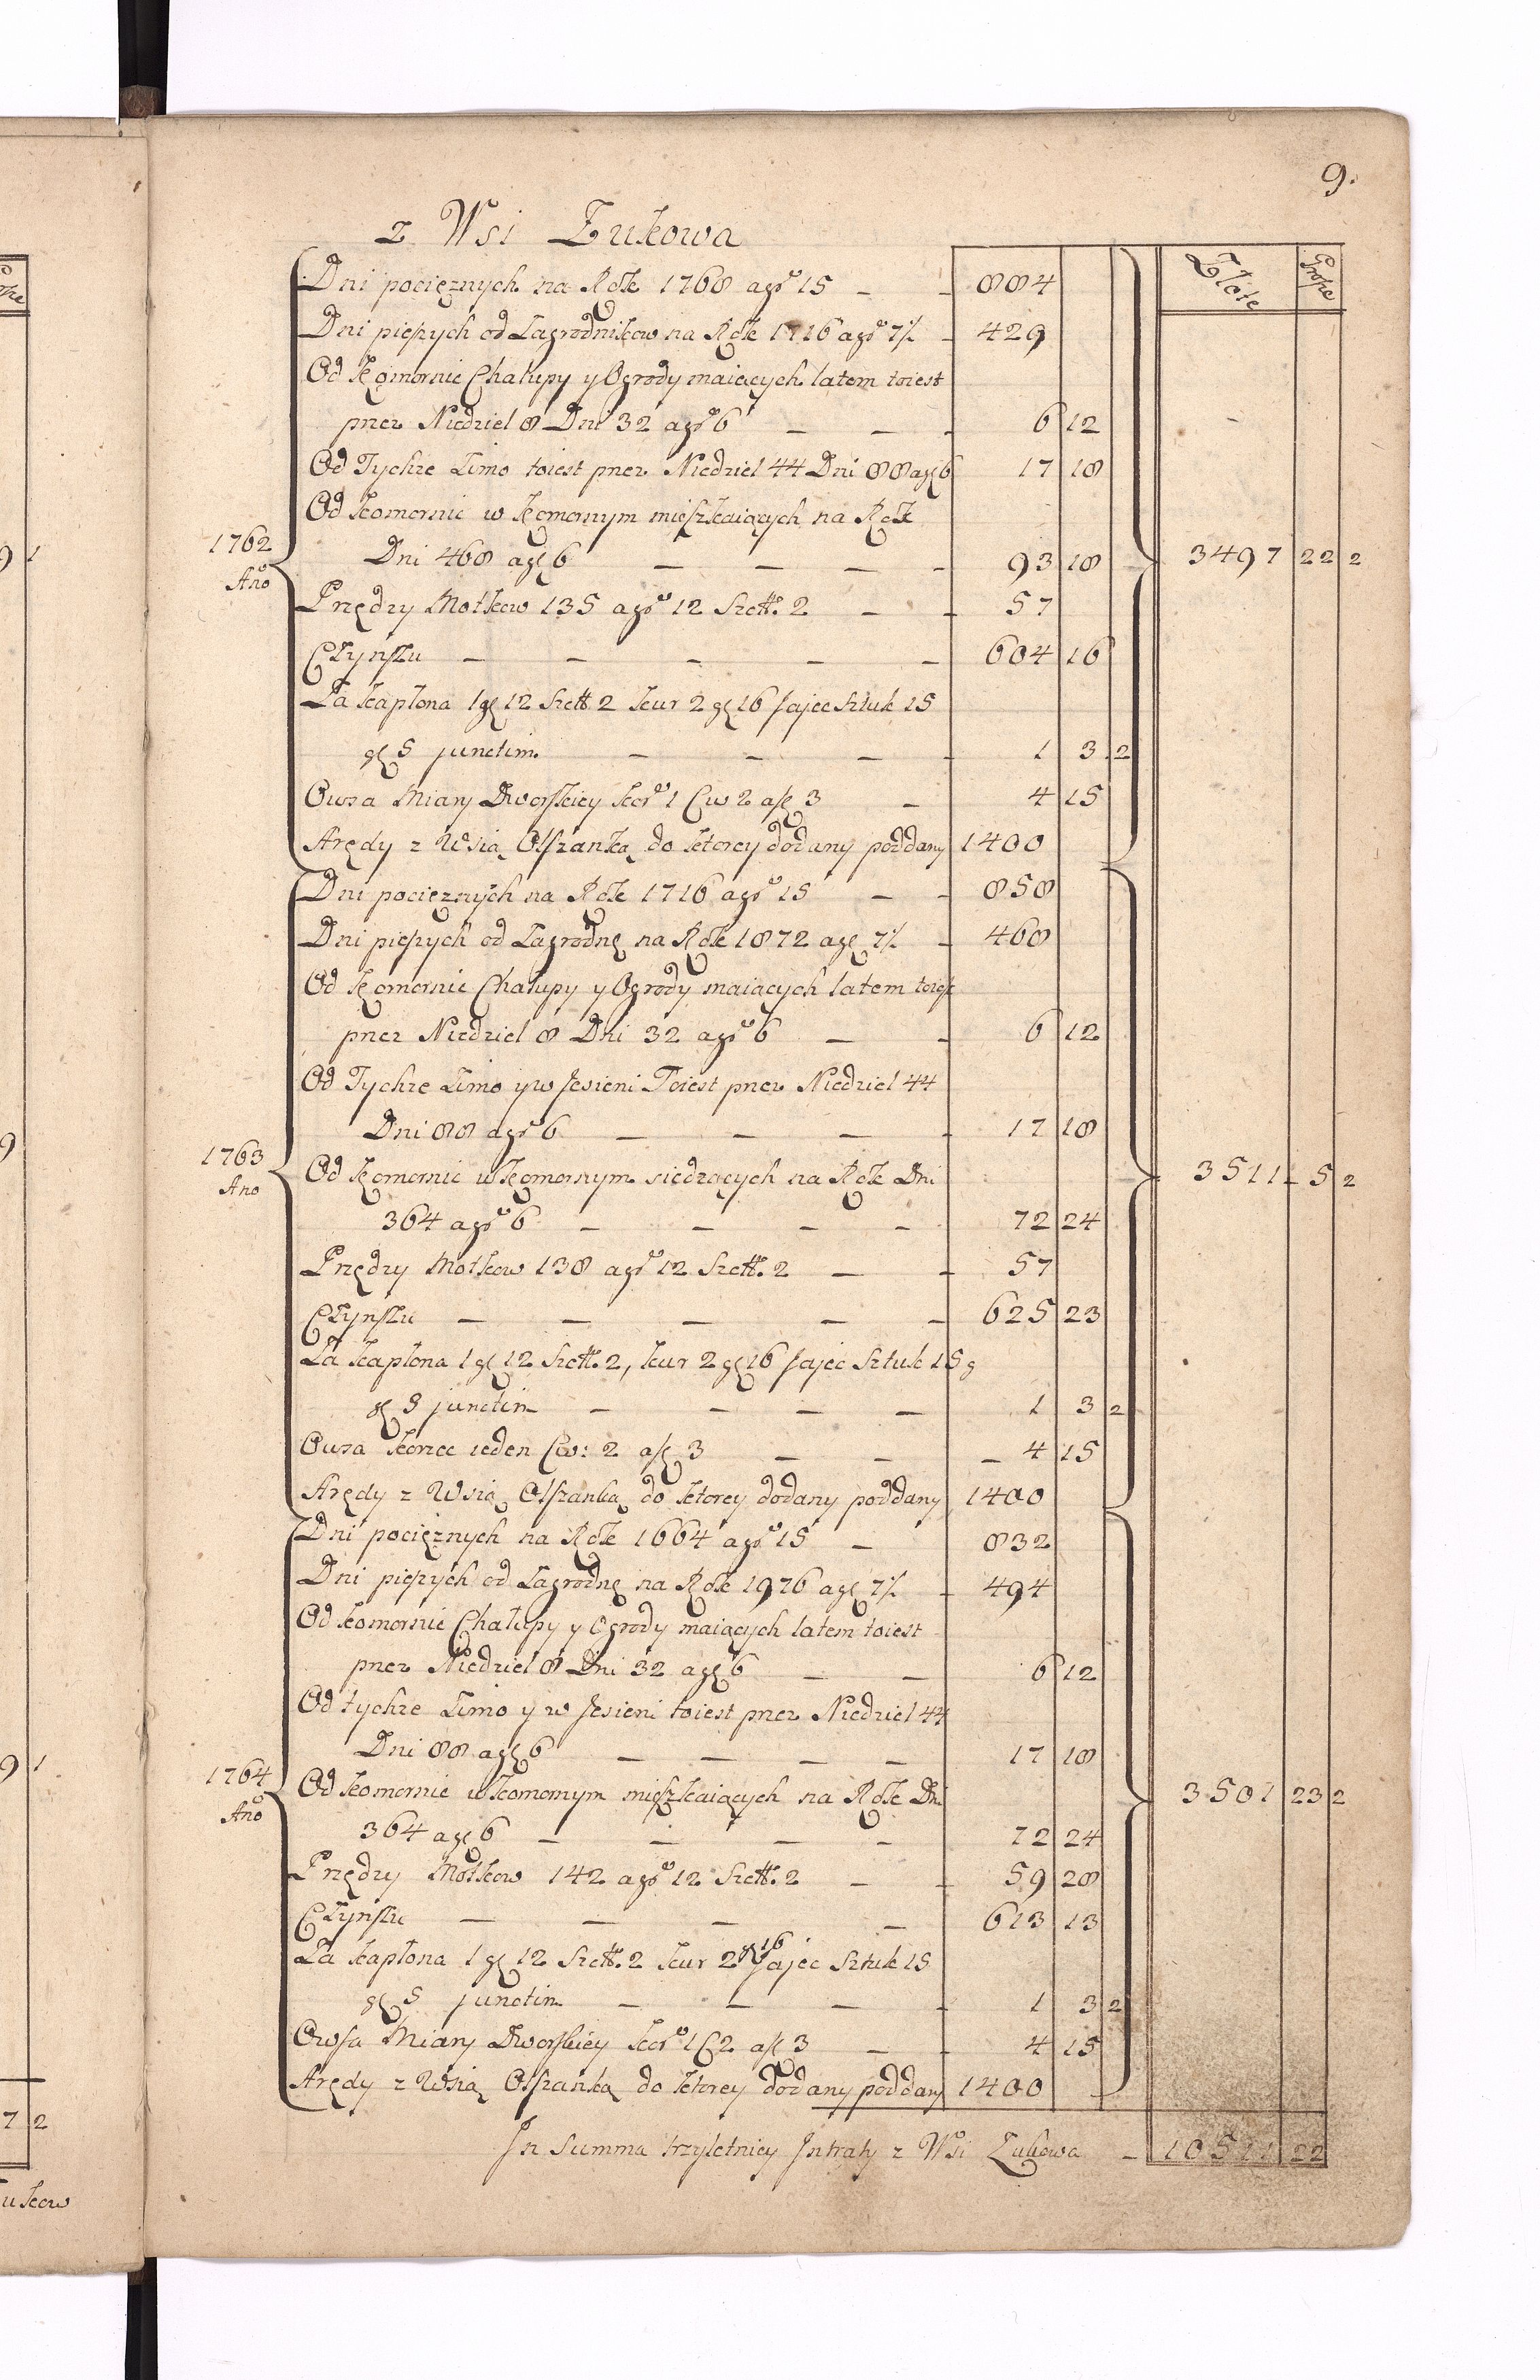 9.
z Wsi Żukowa
Złote Grosze
Dni pociężnych na Rok 1768 a gro 15 — — 884
Dni pieszych od Zagrodnikow na Rok 1716 a gro 7½ — 429
Od Komornic Chałupy y Ogrody maiących latem toiest
przez Niedziel 8 Dni 32 a gro 6 — — — 6 12
Od Tychże Zimo toiest przez Niedziel 44 Dni 88 a gr 6 17 18
Od komornic w Komornym mieszkaiących na Rok
1762 Dni 468 a gr 6 — — — — 93 18 3497 22 2
Año
Przędzy Motkow 135 a gro 12 Szelł. 2 — — 57
Czynszu — — — — — 604 16
Za kapłona 1 gr 12 Szelł 2 kur 2 gr 16 Jajec Sztuk 15
gr 5 junctim — — — — 1 3 2
Owsa Miary Dworskiey kor 1 Cw 2 a fl 3 — 4 15
Arędy z Wsią Olszanką do ktorey dodany poddany 1400
Dni pociężnych na Rok 1716 a gro 15 — — 858
Dni pieszych od Zagrodnę na Rok 1872 a gr 7½ — 468
Od Komornic Chałupy y Ogrody maiących latem toiest
przez Niedziel 8 Dni 32 a gro 6 — — 6 12
Od Tychże Zimo y w Jesieni Toiest przez Niedziel 44
Dni 88 a gro 6 — — — — 17 18
1763 Od Komornic w Komornym siedzących na Rok Dni 3511 5 2
Ano
364 a gro 6 — — — — 72 24
Przędzy Motkow 138 a gro 12 Szelł. 2 — — 57
Czynszu — — — — — 625 23
Za kapłona 1 gr 12 Szelł. 2, kur 2 gr 16 Jajec Sztuk 15 g
gr 3 junctim — — — — 1 3 2
Owsa korzec ieden Cw: 2 a fl 3 — — — 4 15
Arędy z Wsią Olszanką do ktorey dodany poddany 1400
Dni pociężnych na Rok 1664 a gro 15 — 832
Dni pieszych od Zagrodnę na Rok 1976 a gr 7½ — 494
Od komornic Chałupy y Ogrody maiących latem toiest
przez Niedziel 8 Dni 32 a gr 6 — — 6 12
Od tychże Zimo y w Jesieni toiest przez Niedziel 44
Dni 88 a gr 6 — — — — 17 18
1764 Od komornic w komornym mieszkaiących na Rok Dni 3501 23 2
Año
364 a gr 6 — — — — 72 24
Przędzy Motkow 142 a gro 12 Szelł. 2 — — 59 28
Czynszu — — — — 613 13
Za kapłona 1 gr 12 Szelł. 2 kur 2 gr 16 Jajec Sztuk 15
gr 5 junctim — — — — 1 3 2
Owsa Miary Dworskiey kor 1 C 2 a fl 3 — — 4 15
Arędy z Wsią Olszanką do ktorey dodany poddany 1400
In Summa trzyletniey Intraty z Wsi Żukowa — 10511 22